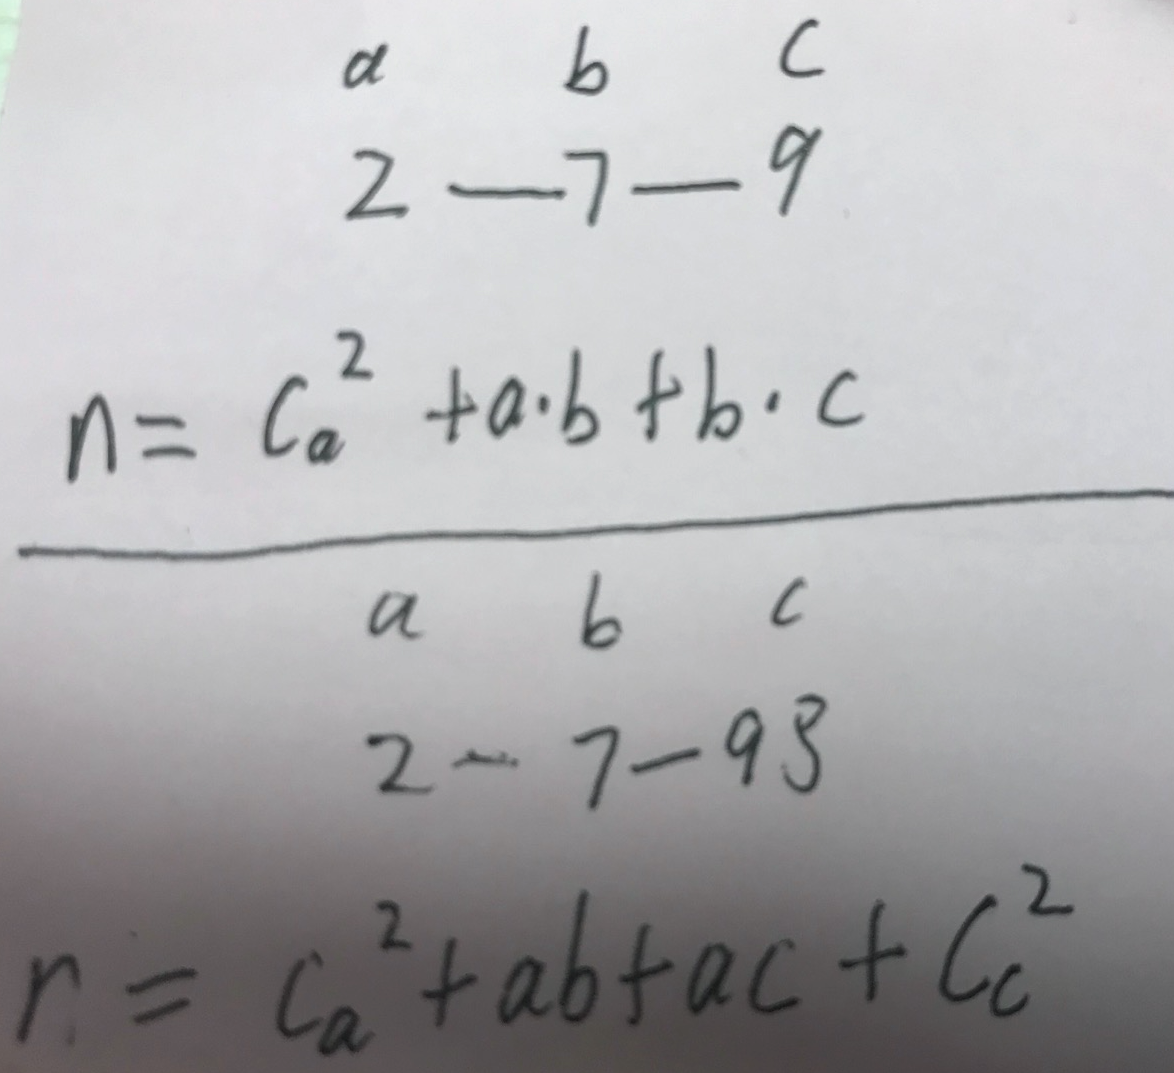 a b c
2 — 7 — 9
n = C_a^2 + a·b + b·c
a b c
2 - 7 - 93
n = C_a^2 + ab + ac + C_c^2